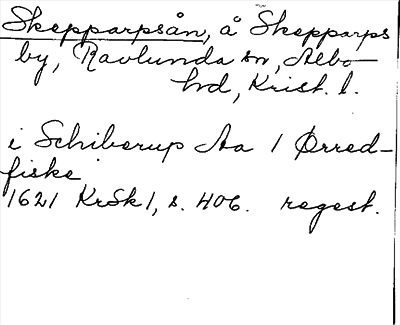 Skepparpsån, å Skepparps
by, Ravlunda sn, Albo
hd, Krist. l.
i Schiberup Aa 1 Ørred-
fiske
1621 KrSk1, s. 406. regest.